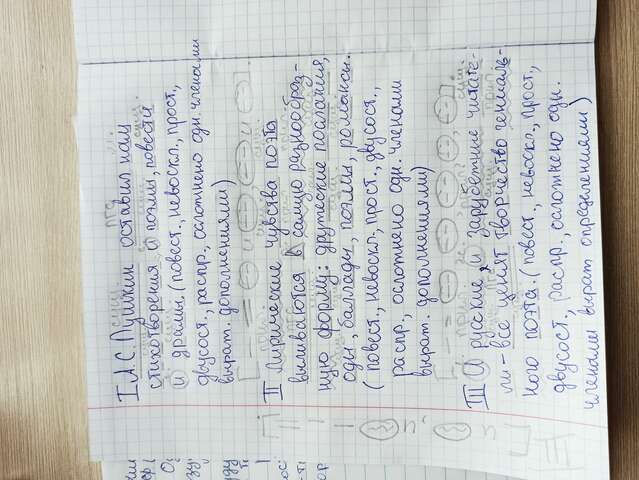 I. А.С. Пушкин оставил нам
стихотворения и поэмы, повести
и драмы. (повест., невоскл., прост.,
двусост., распр., осложнено одн. членами
выраж. дополнениями)
II Лирические чувства поэта
выливаются в самую разнообраз-
ную форму: дружеские послания,
оды, баллады, поэмы, романсы.
(повест., невоскл., прост., двусост.,
распр., осложнено одн. членами
выраж. дополнениями)
III И русские, и зарубежные читате-
ли - все ценят творчество гениаль-
ного поэта. (повест., невоскл., прост.,
двусост., распр., осложнено одн.
членами выраж определениями)